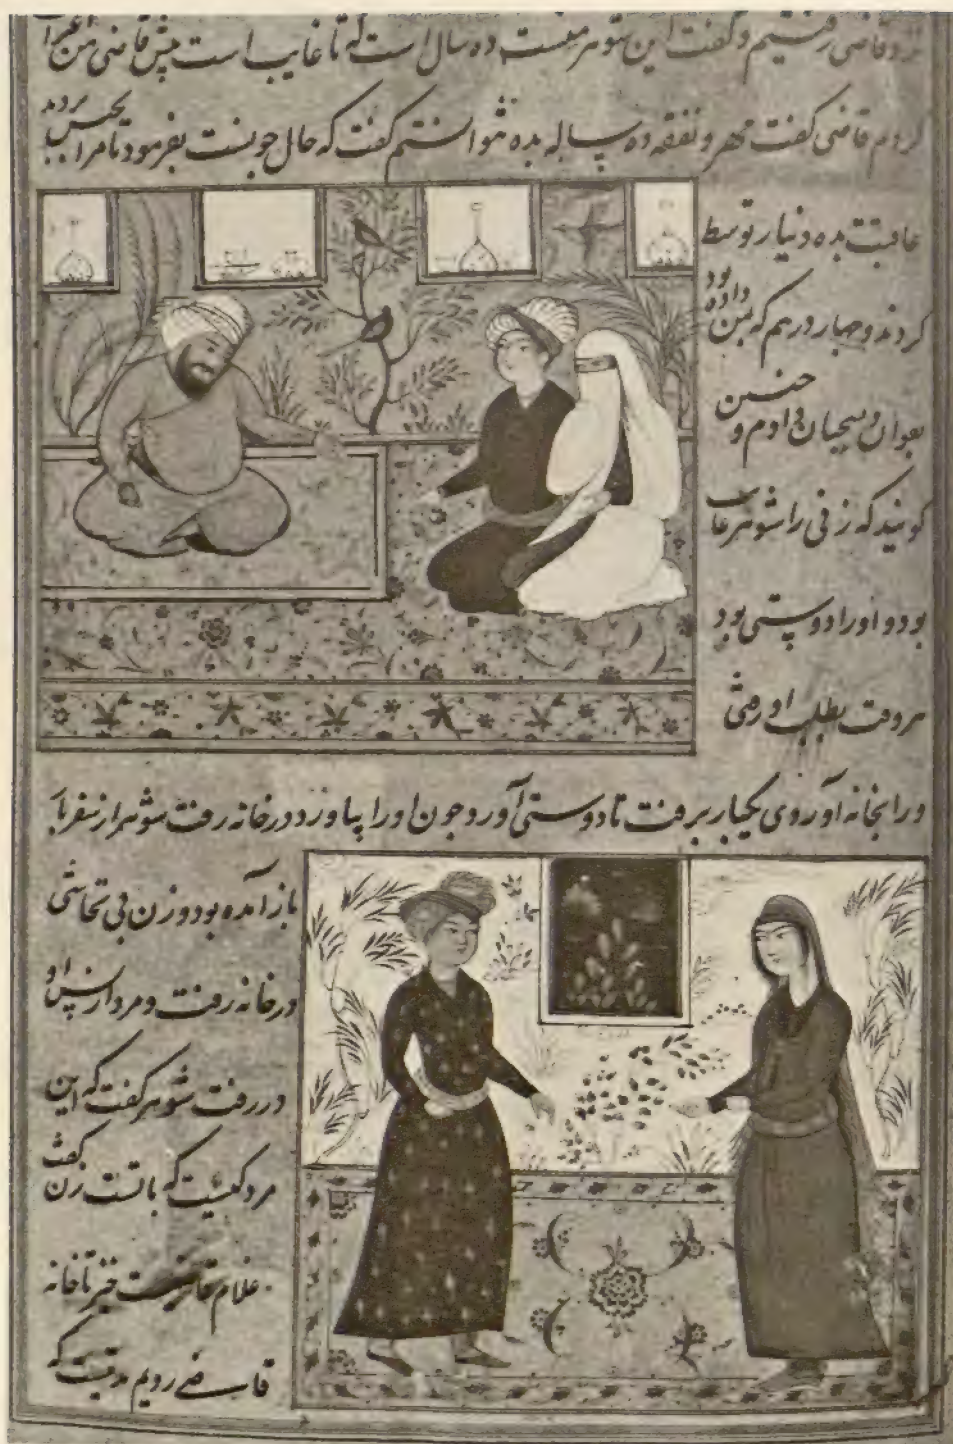 نزد قاضی رفتیم و گفت این شوهر منست ده سال است که تا غایب است پیش قاضی من
کردم قاضی گفت مهر و نفقه ده ساله بده نتوانستم گفت که حال چونست بفرمود تا مرا بحبس بردند
عاقبت بده دینار توسط
کردند و چهار درهم که بمن داده بود
بعوانان و سجانان دادم و چنین
کویند که زنی را شوهر غایب
بود و او را دوستی بود
هر وقت بطلب او رفتی
و را بخانه آوردی یکبار برفت تا دوستی آورد چون او را بیاورد در خانه رفت شوهر از سفر باز
باز آمده بود و زن بی تحاشی
در خانه رفت و مرد از پس او
در رفت شوهر گفت که این
مرد کیست که با تست زن گفت
غلام قاضیست خیز تا خانه
قاضی رویم مدتیست که